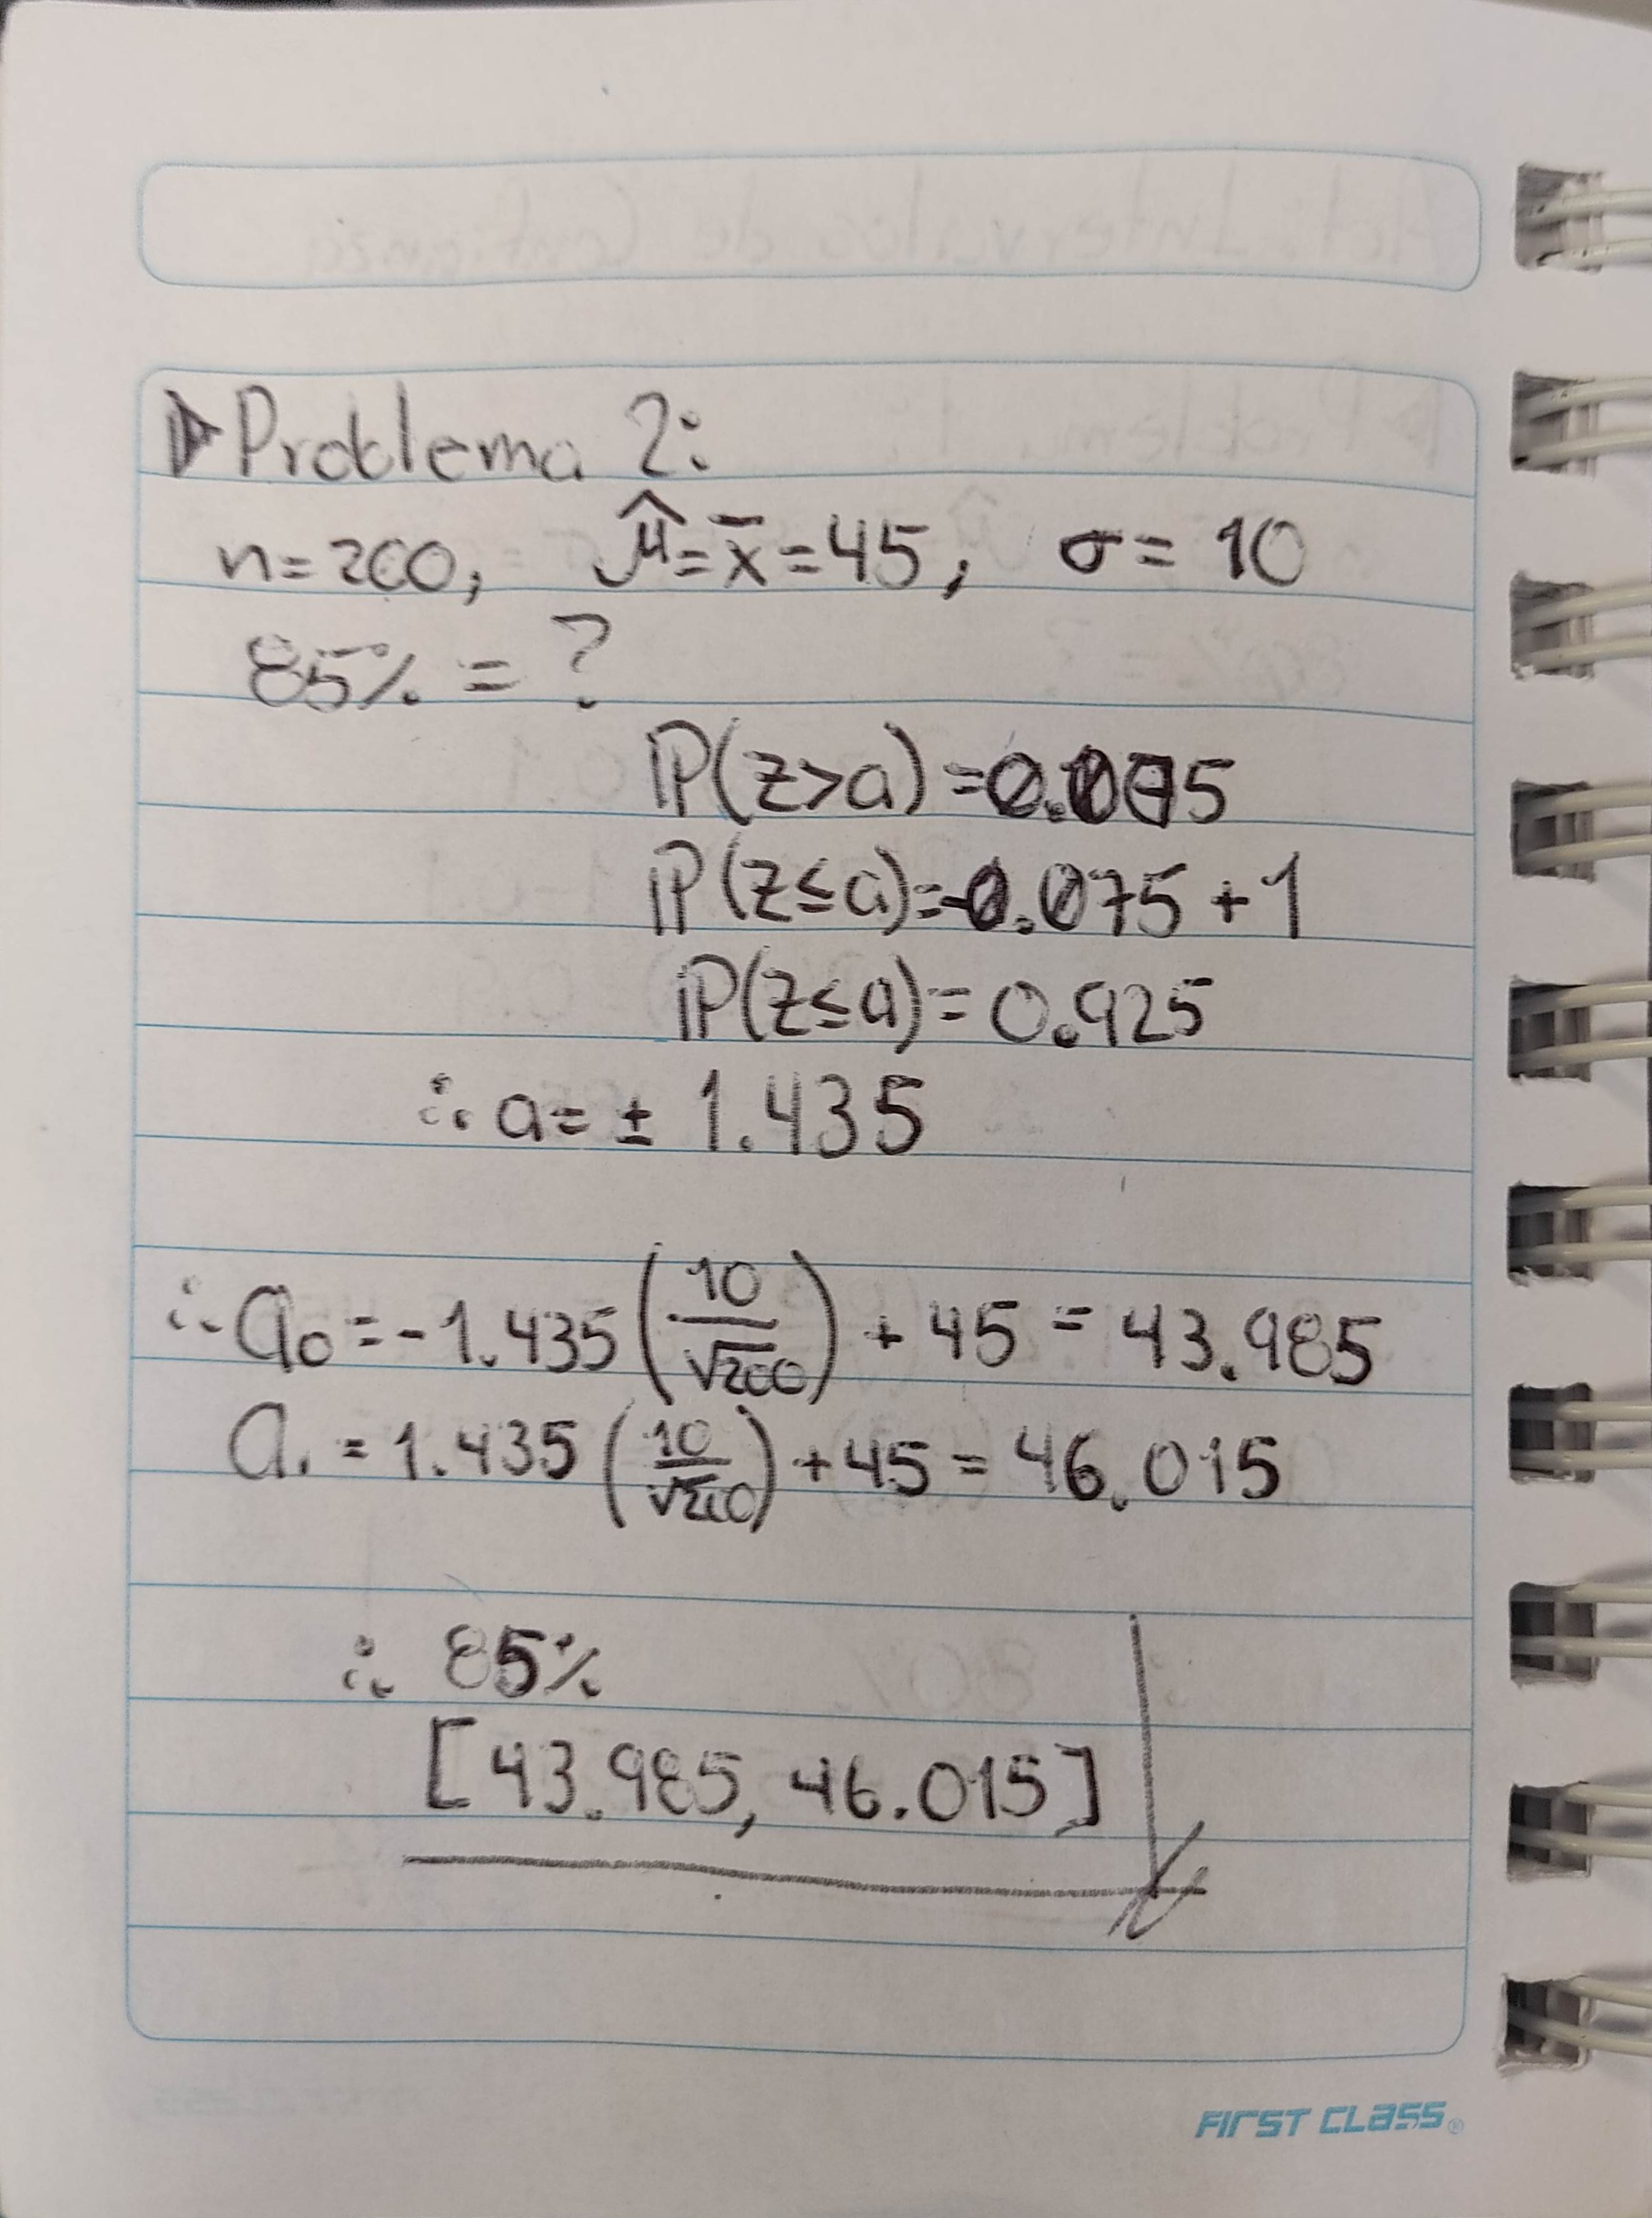 Problema 2:
n=200, μ̂=x̄=45, σ=10
85% = ?
P(z>a)=0.075
P(z≤a)=-0.075+1
P(z≤a)=0.925
∴ a= ± 1.435
∴ a₀=-1.435(10/√200)+45=43.985
a₁=1.435(10/√200)+45=46.015
∴ 85%
[43.985, 46.015]
FIRST CLASS®